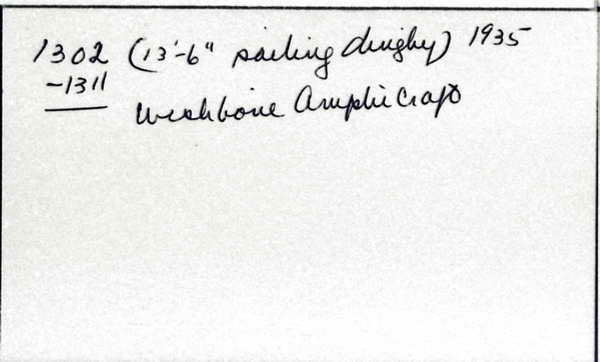 1302 (13'-6" sailing dinghy) 1935
-1311
Wishbone Amphi Craft